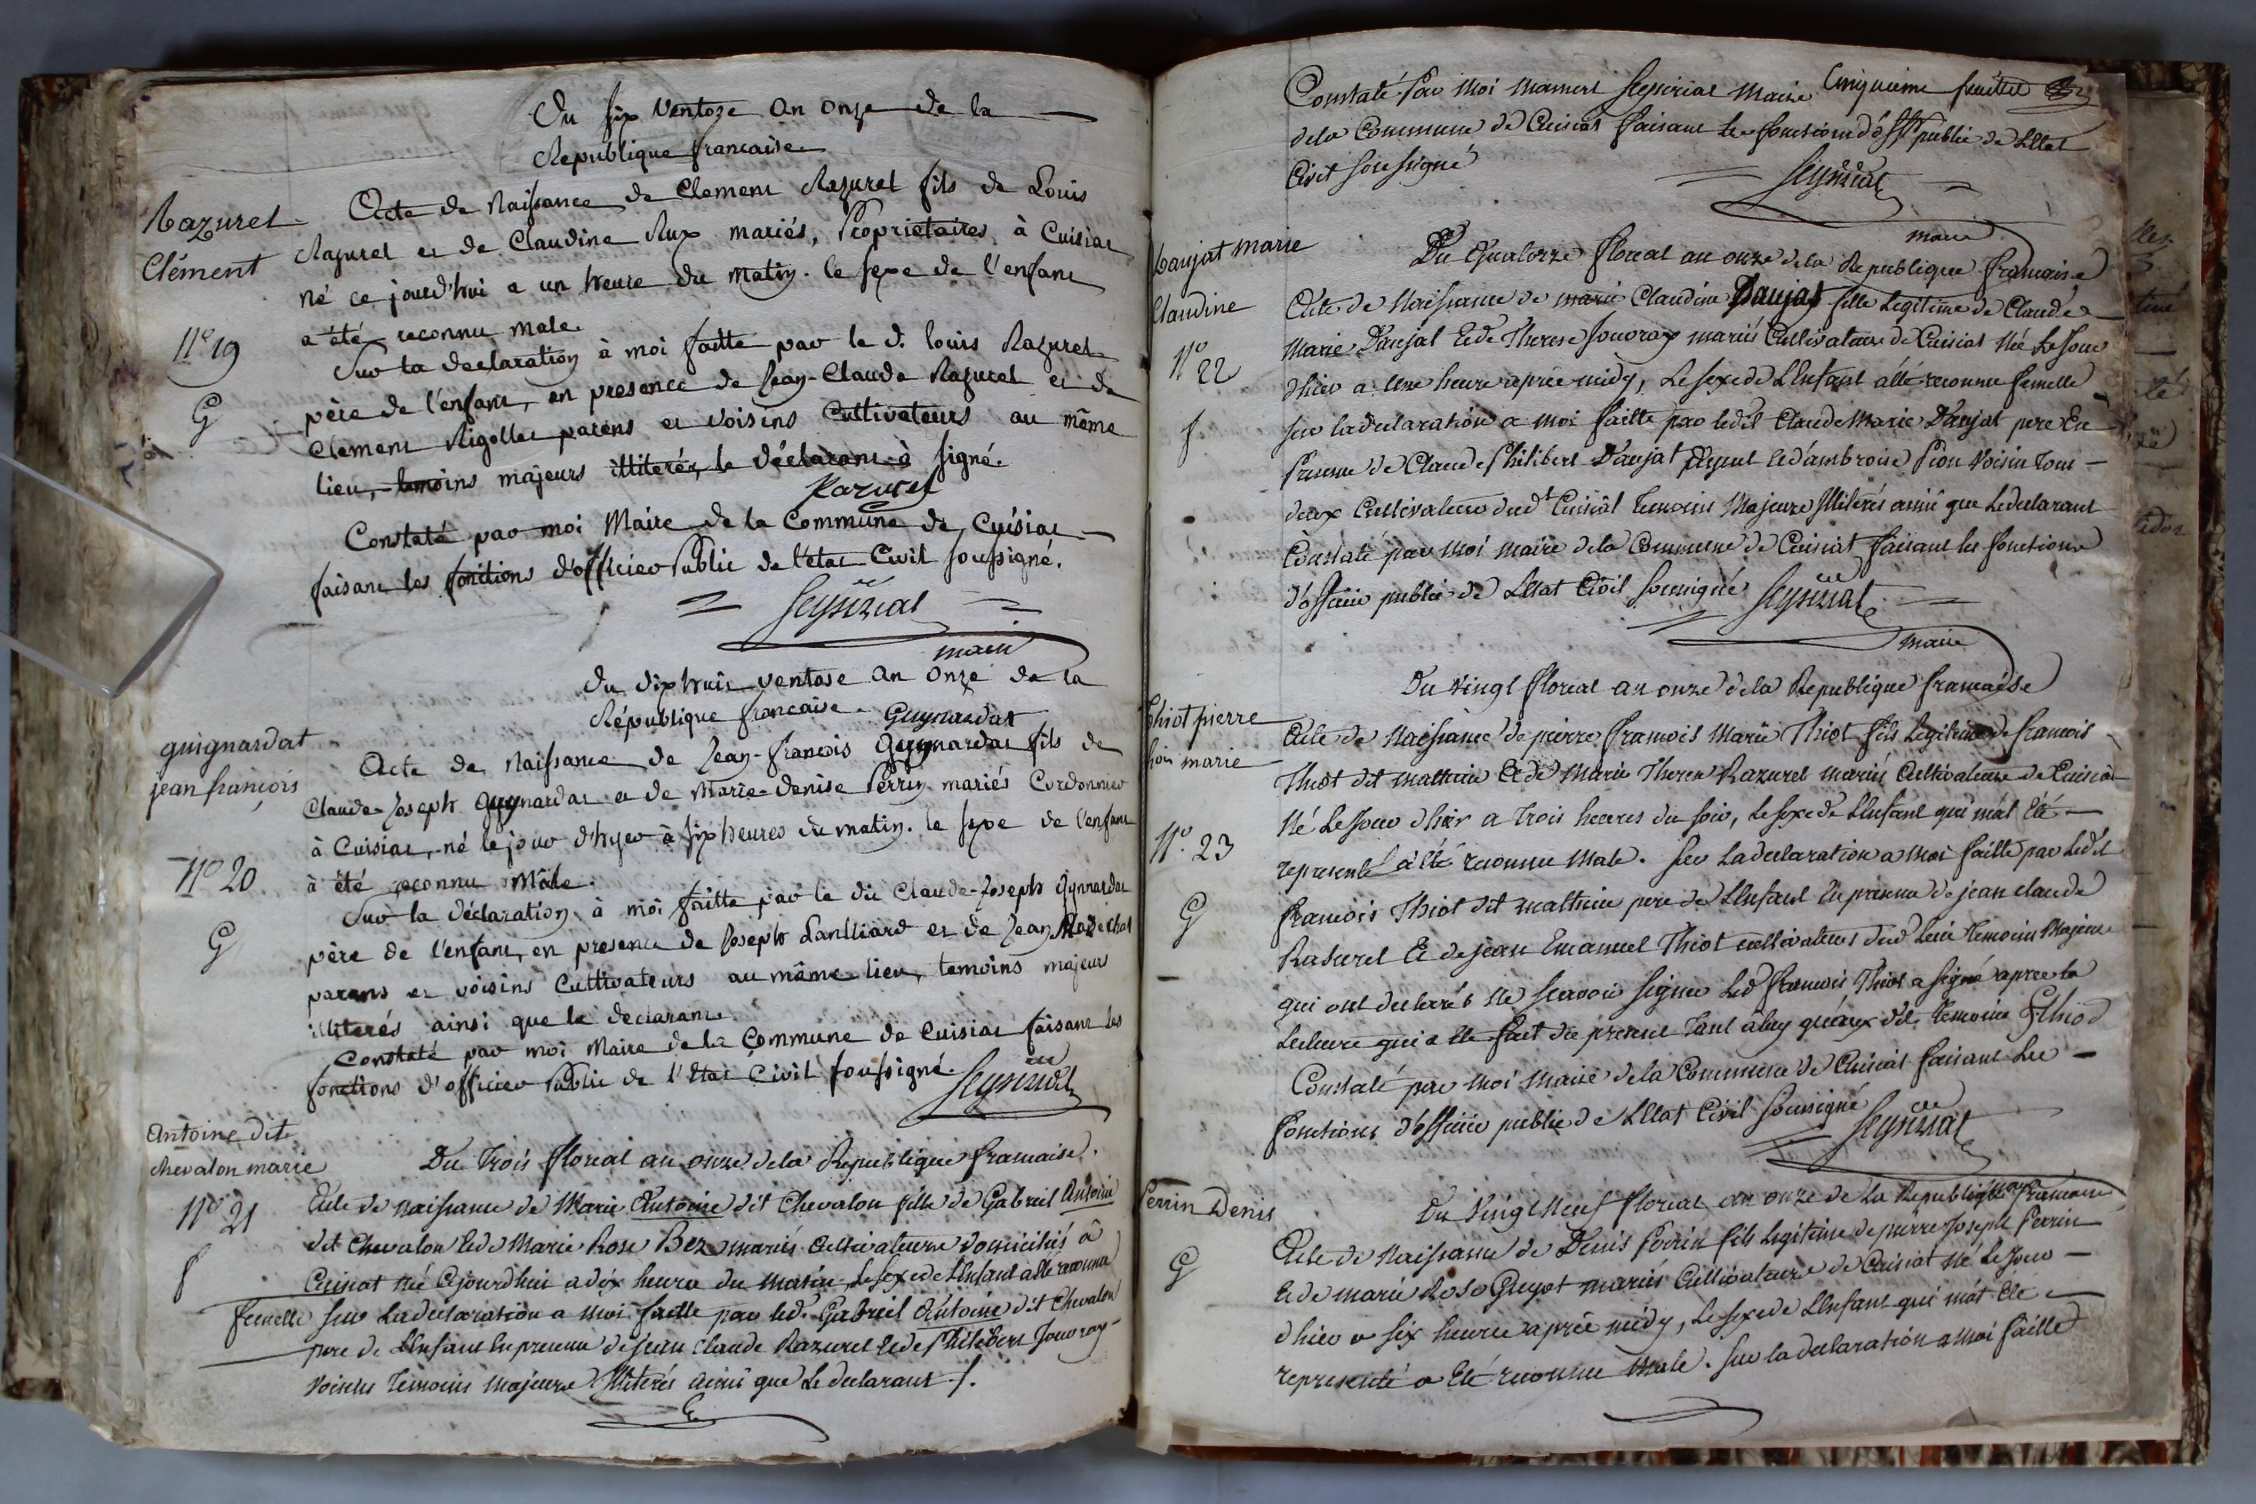 Du six Ventoze an onze de la
Republique francaise
Razuret
Clément
N° 19
G
Acte de Naissance de Clement Razuret fils de Louis
Razuret et de Claudine Rux mariés, Proprietaires à Cuisiat
né ce jourd'hui a un heure du matin. le sexe de l'enfant
a été reconnu male.
Sur la declaration à moi faitte par le d. louis Razuret
père de l'enfant, en presence de Jean-Claude Razuret et de
Clement Rigollet parens et voisins Cultivateurs au même
lieu, temoins majeurs illiterés, le déclarant à signé.
Razuret
Constaté par moi Maire de la Commune de Cuisiat
faisant les fonctions d'officier Public de l'état Civil soussigné.
maire
du dix huit ventose an onze de la
République francaise. Guynardat
guignardat
jean françois
N° 20
G
Acte de Naissance de Jean-francois Guynardat fils de
Claude-Joseph Guynardat et de Marie-denise Perrin mariés Cordonnier
à Cuisiat, né le jour d'hyer à six heures du matin. le sexe de l'enfant
à été reconnu Mâle.
Sur la déclaration à moi faitte par le dit Claude-Joseph Gynnardat
père de l'enfant, en presence de Joseph Lanlliard et de Jean Marechal
parens et voisins Cultivateurs au même lieu, temoins majeurs
illiterés ainsi que le declarant.
Constaté par moi Maire de la Commune de Cuisiat faisant les
fonctions d'officier Public de l'état Civil soussigné.
Antoine dit
chevalon marie
N° 21
f
Du Trois floreal an onze de la Republique francaise.
Acte de naissance de Marie Antoine dit Chevalon fille de Gabriel Antoine
dit Chevalon et de Marie Rose Bez mariés Cultivateurs domiciliés à
Cuisiat Né Cejourdhui a dix heures du matin. Le sexe de L'enfant a été reconnu
femelle sur La declaration a moi faitte par led. Gabriel Antoine dit Chevalon
pere de L'enfant en presence de Jean Claude Razuret et de Philibert Jouvray
voisins temoins majeurs Illiterés ainsi que Le declarant.
Constaté Par Moi Mamert Maire Cinquieme feuillet
de la Commune de Cuisiat faisant les fonctions d'off. public de L'Etat
Civil soussigné
maire
Daujat marie
Claudine
N° 22
f
Du Quatorze floreal an onze de la Republique francaise
Acte de Naissance de marie Claudine Daujat fille Legitime de Claude
Marie Daujat et de Therese Jouvray mariés Cultivateurs de Cuisiat Né Le Jour
dhier a une heure aprés midy, Le sexe de L'enfant a été reconnu femelle
sur la declaration a moi faitte par ledit Claude Marie Daujat pere En
presence de Claude Philibert Daujat et d'ambroise Pion Voisin Tous
deux Cultivateurs dud.t Cuisiat temoins Majeurs Illiterés ainsi que Le declarant
Constaté par moi maire de la Commune de Cuisiat faisant les fonctions
d'officier public de L'Etat Civil soussigné
maire
Thiot pierre
marie
N° 23
G
Du Vingt floreal an onze de la Republique francaise
Acte de Naissance de pierre francois Marie Thiot fils Legitime de francois
Thiot dit mathieu et de Marie Therese Razuret mariés Cultivateurs de Cuisiat
Né Le Jour dhier a trois heures du soir, Le sexe de L'enfant qui m'at été
representé a été reconnu Male. sur La declaration a moi faitte par ledit
francois Thiot dit mathieu pere de L'enfant En presence de jean claude
Rasuret et de jean Emanuel Thiot cultivateurs dud. Lieu temoins Majeurs
qui ont declarés Ne scavoir signer Led. francois Thiot a signé apres la
Lecture qui a été fait du present Tant a luy qu'aux dits temoins fthiod
Constaté par moi Maire de la Commune de Cuisiat faisant les
fonctions d'officier public de L'Etat Civil soussigné
maire
Perrin Denis
G
Du Vingt Neuf floreal an onze de la Republique francaise
Acte de Naissance de Denis Perrin fils Legitime de pierre Joseph Perrin
et de marie Rose Guyot mariés Cultivateurs de Cuisiat Né Le Jour
dhier a six heures aprés midy, Le sexe de L'enfant qui m'at été
representé a été reconnu Male. sur la declaration a moi faitte